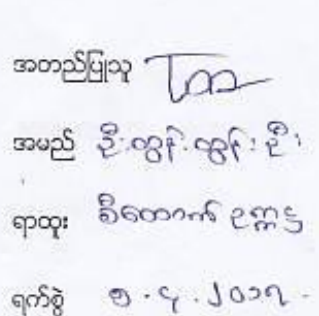 အတည်ပြုသူ
အမည် ဦးထွန်းထွန်းဦး
ရာထူး စီတောက် ဥက္ကဋ္ဌ
ရက်စွဲ ၅.၄.၂၀၁၇